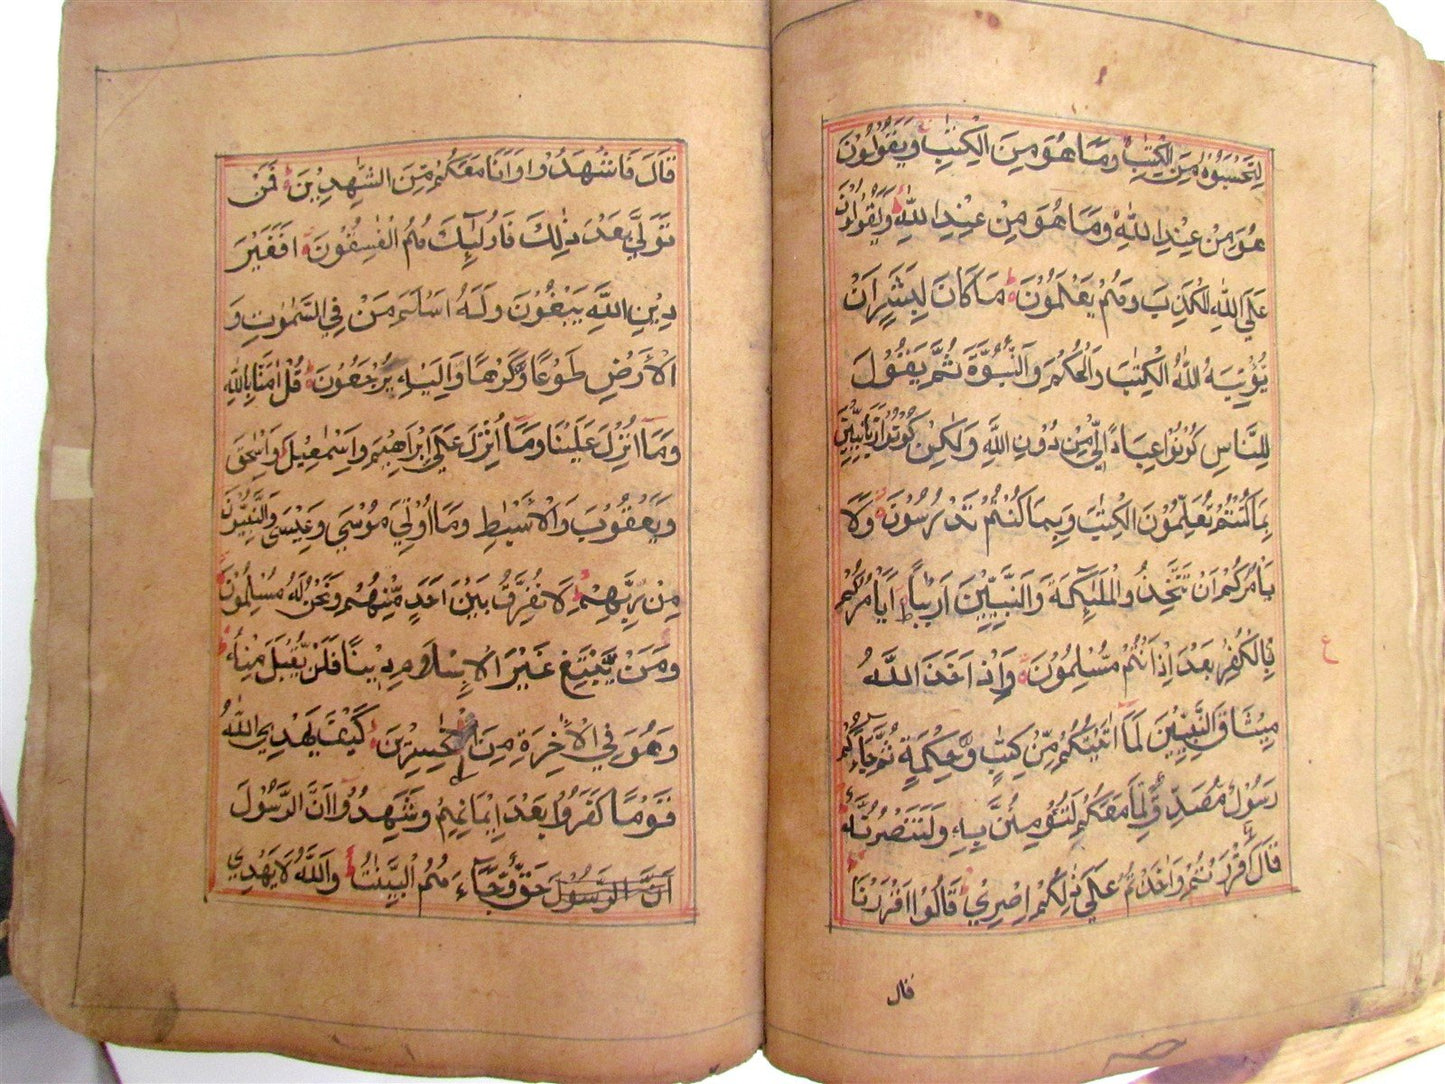 لِتَحْسَبُوْهُ مِنَ الْكِتٰبِ وَمَا هُوَ مِنَ الْكِتٰبِ وَيَقُوْلُوْنَ
هُوَ مِنْ عِنْدِ اللّٰهِ وَمَا هُوَ مِنْ عِنْدِ اللّٰهِ وَيَقُوْلُوْنَ
عَلَى اللّٰهِ الْكَذِبَ وَهُمْ يَعْلَمُوْنَ مَا كَانَ لِبَشَرٍ اَنْ
يُؤْتِيَهُ اللّٰهُ الْكِتٰبَ وَالْحُكْمَ وَالنُّبُوَّةَ ثُمَّ يَقُوْلَ
لِلنَّاسِ كُوْنُوْا عِبَادًا لِّيْ مِنْ دُوْنِ اللّٰهِ وَلٰكِنْ كُوْنُوْا رَبَّانِيّٖنَ
بِمَا كُنْتُمْ تُعَلِّمُوْنَ الْكِتٰبَ وَبِمَا كُنْتُمْ تَدْرُسُوْنَ وَلَا
يَاْمُرَكُمْ اَنْ تَتَّخِذُوا الْمَلٰٓئِكَةَ وَالنَّبِيّٖنَ اَرْبَابًا اَيَاْمُرُكُمْ
بِالْكُفْرِ بَعْدَ اِذْ اَنْتُمْ مُّسْلِمُوْنَ وَاِذْ اَخَذَ اللّٰهُ
ع
مِيْثَاقَ النَّبِيّٖنَ لَمَا اٰتَيْتُكُمْ مِّنْ كِتٰبٍ وَّحِكْمَةٍ ثُمَّ جَآءَكُمْ
رَسُوْلٌ مُّصَدِّقٌ لِّمَا مَعَكُمْ لَتُؤْمِنُنَّ بِهٖ وَلَتَنْصُرُنَّهٗ
قَالَ ءَاَقْرَرْتُمْ وَاَخَذْتُمْ عَلٰى ذٰلِكُمْ اِصْرِيْ قَالُوْا اَقْرَرْنَا
قال
قَالَ فَاشْهَدُوْا وَاَنَا مَعَكُمْ مِّنَ الشّٰهِدِيْنَ فَمَنْ
تَوَلّٰى بَعْدَ ذٰلِكَ فَاُولٰٓئِكَ هُمُ الْفٰسِقُوْنَ اَفَغَيْرَ
دِيْنِ اللّٰهِ يَبْغُوْنَ وَلَهٗ اَسْلَمَ مَنْ فِي السَّمٰوٰتِ وَ
الْاَرْضِ طَوْعًا وَّكَرْهًا وَّاِلَيْهِ يُرْجَعُوْنَ قُلْ اٰمَنَّا بِاللّٰهِ
وَمَآ اُنْزِلَ عَلَيْنَا وَمَآ اُنْزِلَ عَلٰٓى اِبْرٰهِيْمَ وَاِسْمٰعِيْلَ وَاِسْحٰقَ
وَيَعْقُوْبَ وَالْاَسْبَاطِ وَمَا اُوْتِيَ مُوْسٰى وَعِيْسٰى وَالنَّبِيُّوْنَ
مِنْ رَّبِّهِمْ لَا نُفَرِّقُ بَيْنَ اَحَدٍ مِّنْهُمْ وَنَحْنُ لَهٗ مُسْلِمُوْنَ
وَمَنْ يَّبْتَغِ غَيْرَ الْاِسْلَامِ دِيْنًا فَلَنْ يُّقْبَلَ مِنْهُ
وَهُوَ فِي الْاٰخِرَةِ مِنَ الْخٰسِرِيْنَ كَيْفَ يَهْدِي اللّٰهُ
قَوْمًا كَفَرُوْا بَعْدَ اِيْمَانِهِمْ وَشَهِدُوْا اَنَّ الرَّسُوْلَ
اَنَّ الرَّسُوْلَ حَقٌّ وَّجَآءَهُمُ الْبَيِّنٰتُ وَاللّٰهُ لَا يَهْدِي